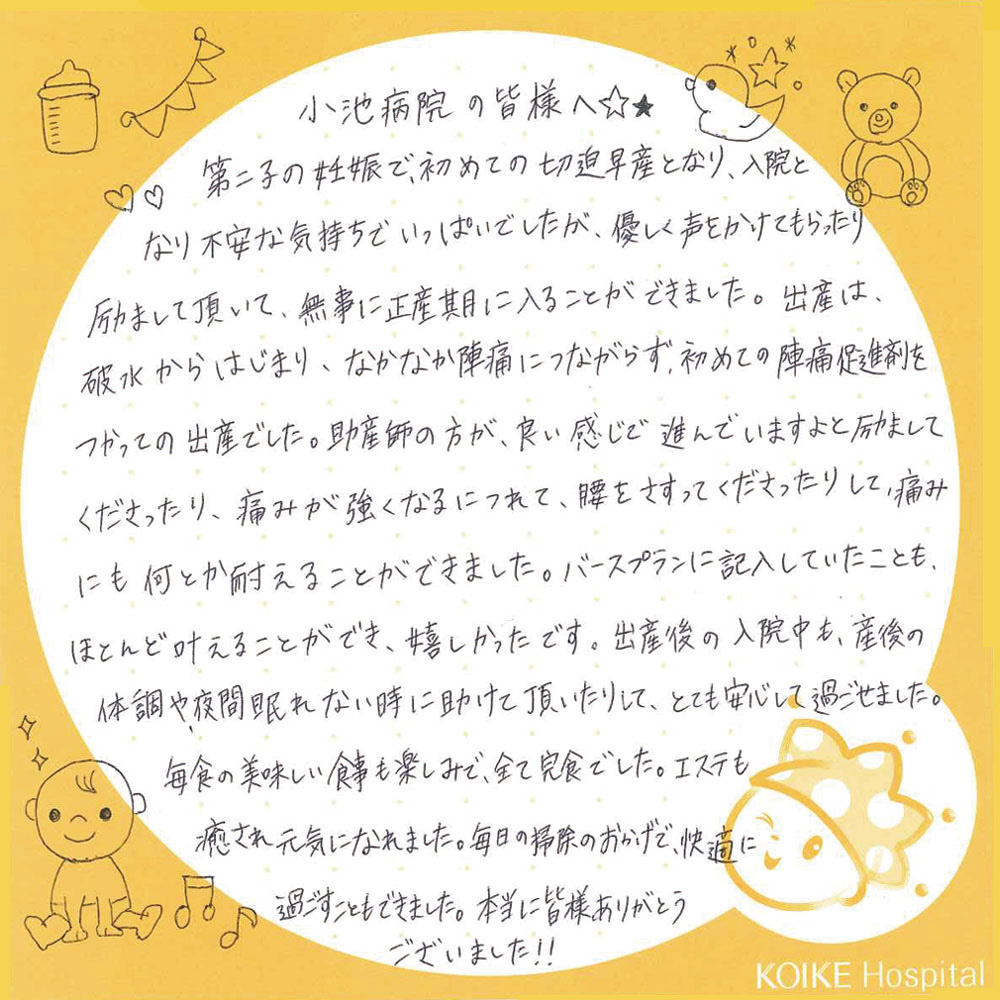 小池病院の皆様へ☆★
第二子の妊娠で、初めての切迫早産となり、入院と
なり不安な気持ちでいっぱいでしたが、優しく声をかけてもらったり
励まして頂いて、無事に正産期に入ることができました。出産は、
破水からはじまり、なかなか陣痛につながらず、初めての陣痛促進剤を
つかっての出産でした。助産師の方が、良い感じで進んでいますよと励まして
くださったり、痛みが強くなるにつれて、腰をさすってくださったりして、痛み
にも何とか耐えることができました。バースプランに記入していたことも、
ほとんど叶えることができ、嬉しかったです。出産後の入院中も、産後の
体調や夜間眠れない時に助けて頂いたりして、とても安心して過ごせました。
毎食の美味しい食事も楽しみで、全て完食でした。エステも
癒され元気になれました。毎日の掃除のおかげで、快適に
過ごすこともできました。本当に皆様ありがとう
ございました!!
KOIKE Hospital